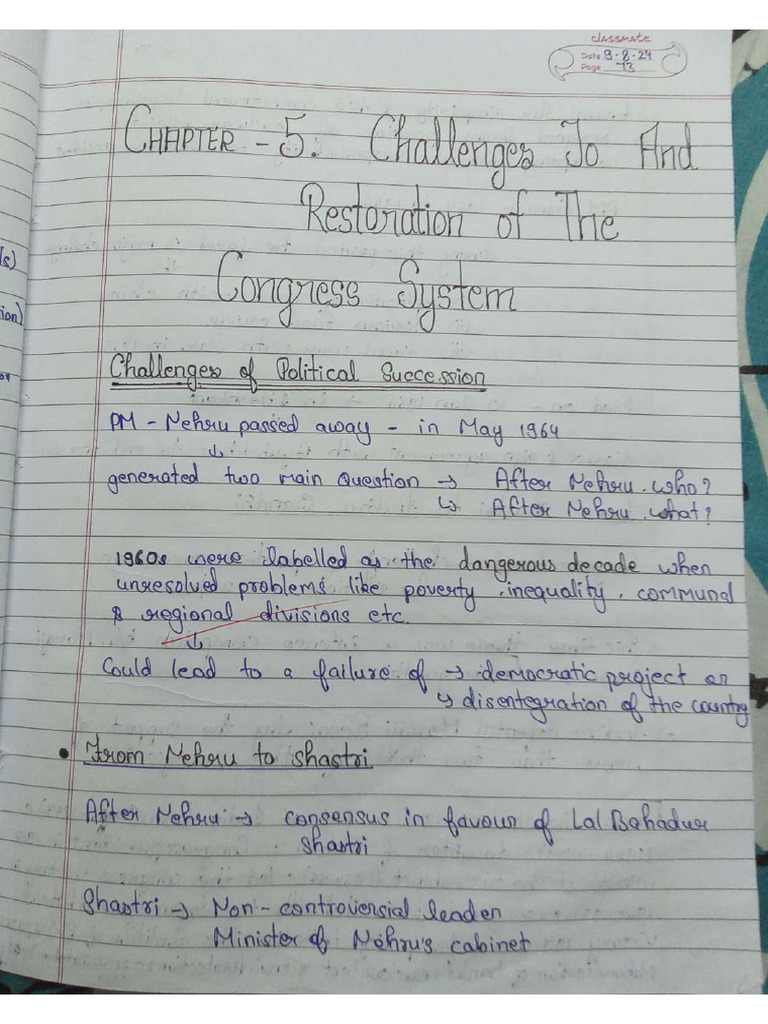 classmate
Date 9-8-24
Page 73
CHAPTER - 5. Challenges To And
Restoration of The
Congress System
Challenges of Political Succession
PM - Nehru passed away - in May 1964
↓
generated two main question → After Nehru, who?
↳ After Nehru, what?
1960s were labelled as the dangerous decade when
unresolved problems like poverty, inequality, communal
& regional divisions etc.
↓
Could lead to a failure of → democratic project or
↳ disentegration of the country
• From Nehru to Shastri
After Nehru → consensus in favour of Lal Bahadur
Shastri
Shastri → Non-controversial leader
Minister of Nehru's cabinet